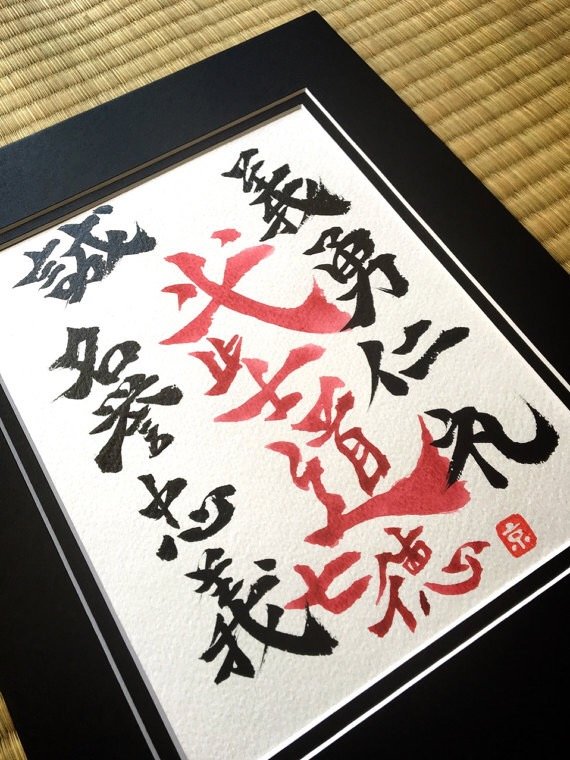 義勇仁礼
武士道
七徳
誠
名誉
忠義
京